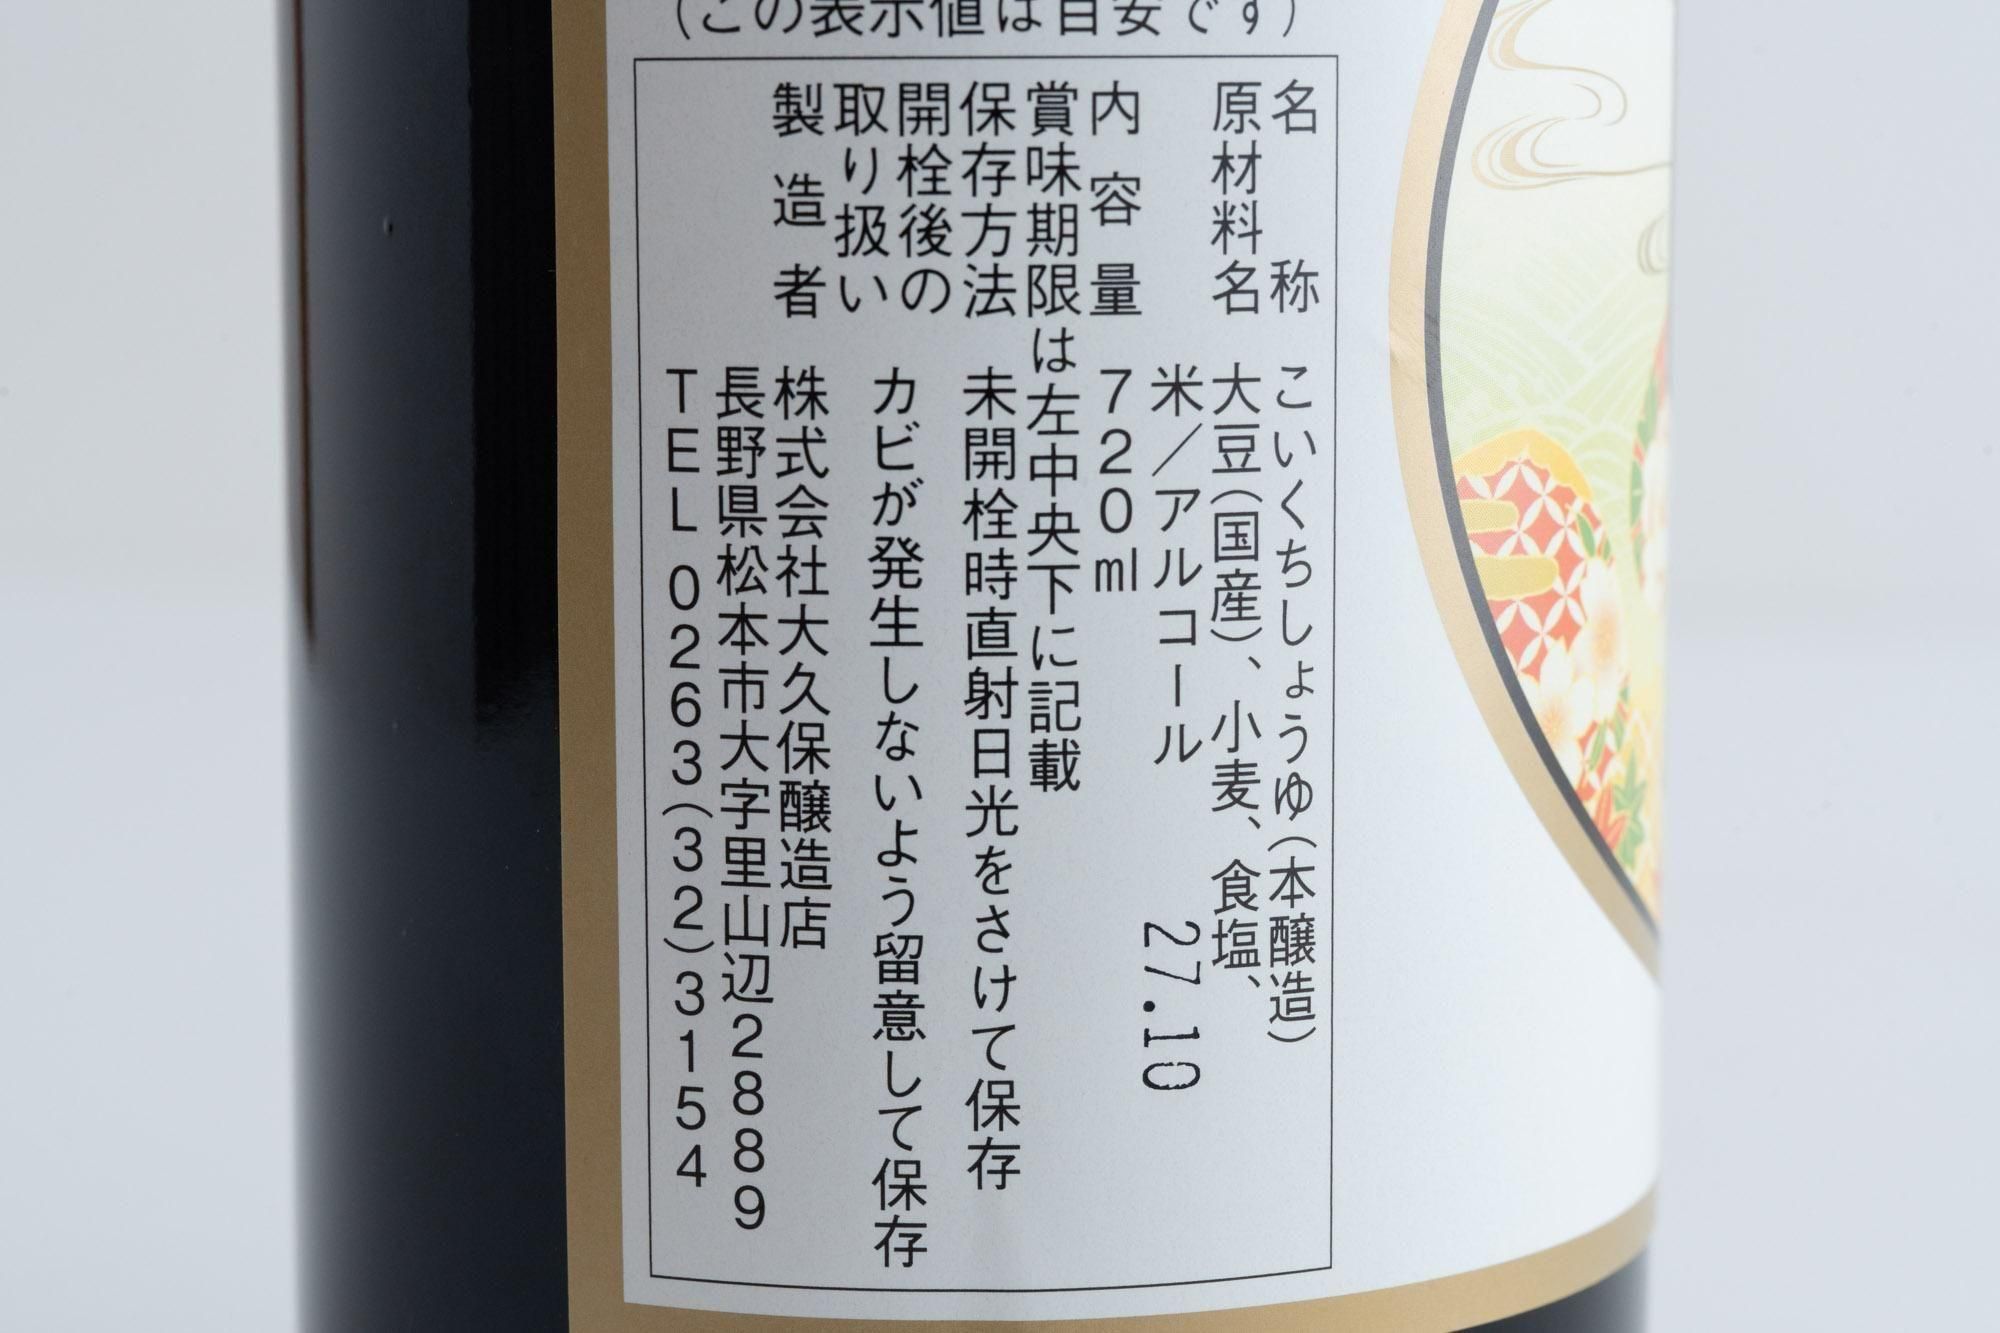 （この表示値は目安です）
名称 こいくちしょうゆ（本醸造）
原材料名 大豆（国産）、小麦、食塩、
米／アルコール
27.10
内容量 720ml
賞味期限は左中央下に記載
保存方法 未開栓時直射日光をさけて保存
開栓後の
取り扱い
カビが発生しないよう留意して保存
製造者 株式会社大久保醸造店
長野県松本市大字里山辺2889
TEL0263(32)3154